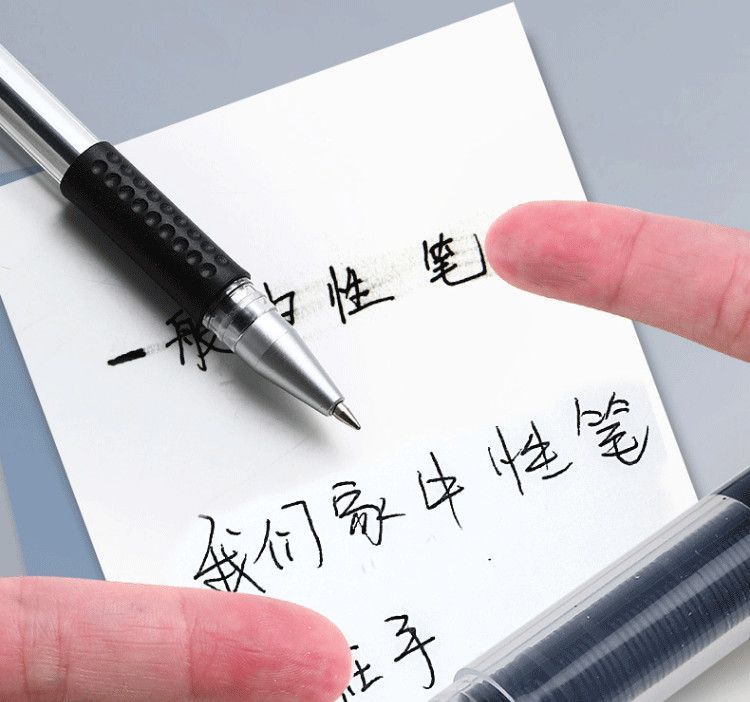 一般中性笔
我们家中性笔
手